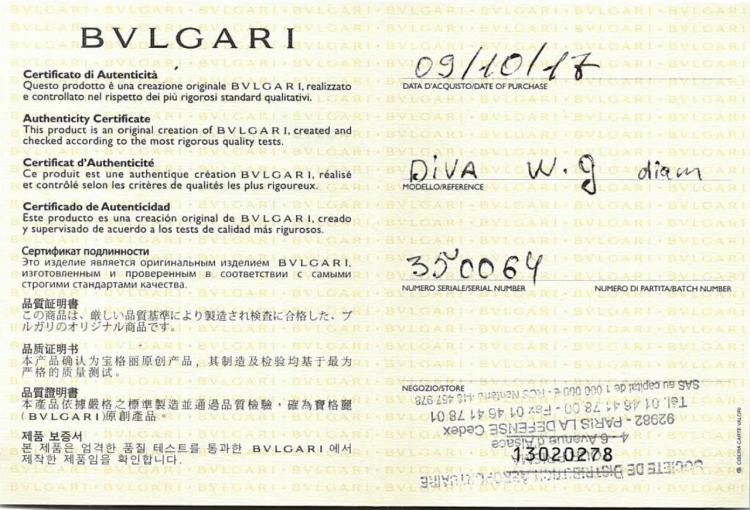 BVLGARI
Certificato di Autenticità
Questo prodotto è una creazione originale BVLGARI, realizzato
e controllato nel rispetto dei più rigorosi standard qualitativi.
Authenticity Certificate
This product is an original creation of BVLGARI, created and
checked according to the most rigorous quality tests.
Certificat d'Authenticité
Ce produit est une authentique création BVLGARI, réalisé
et contrôlé selon les critères de qualités les plus rigoureux.
Certificado de Autenticidad
Este producto es una creación original de BVLGARI, creado
y supervisado de acuerdo a los tests de calidad más rigurosos.
Сертификат подлинности
Это изделие является оригинальным изделием BVLGARI,
изготовленным и проверенным в соответствии с самыми
строгими стандартами качества.
品質証明書
この商品は、厳しい品質基準により製造され検査に合格した、ブ
ルガリのオリジナル商品です。
品质证明书
本产品确认为宝格丽原创产品，其制造及检验均基于最为
严格的质量测试。
品質證明書
本產品依據嚴格之標準製造並通過品質檢驗，確為寶格麗
(BVLGARI)原創產品。
제품 보증서
본 제품은 엄격한 품질 테스트를 통과한 BVLGARI 에서
제작한 제품임을 확인합니다.
09/10/17
DATA D'ACQUISTO/DATE OF PURCHASE
DIVA W.g diam
MODELLO/REFERENCE
350064
NUMERO SERIALE/SERIAL NUMBER NUMERO DI PARTITA/BATCH NUMBER
NEGOZIO/STORE
SOCIETE DE DISTRIBUTION AEROPORTUAIRE
4-6 Avenue d'Alsace
92982 - PARIS LA DEFENSE Cedex
Tél. 01 46 41 78 00 - Fax 01 46 41 78 01
SAS au capital de 1 000 000 € - RCS Nanterre 418 457 978
13020278